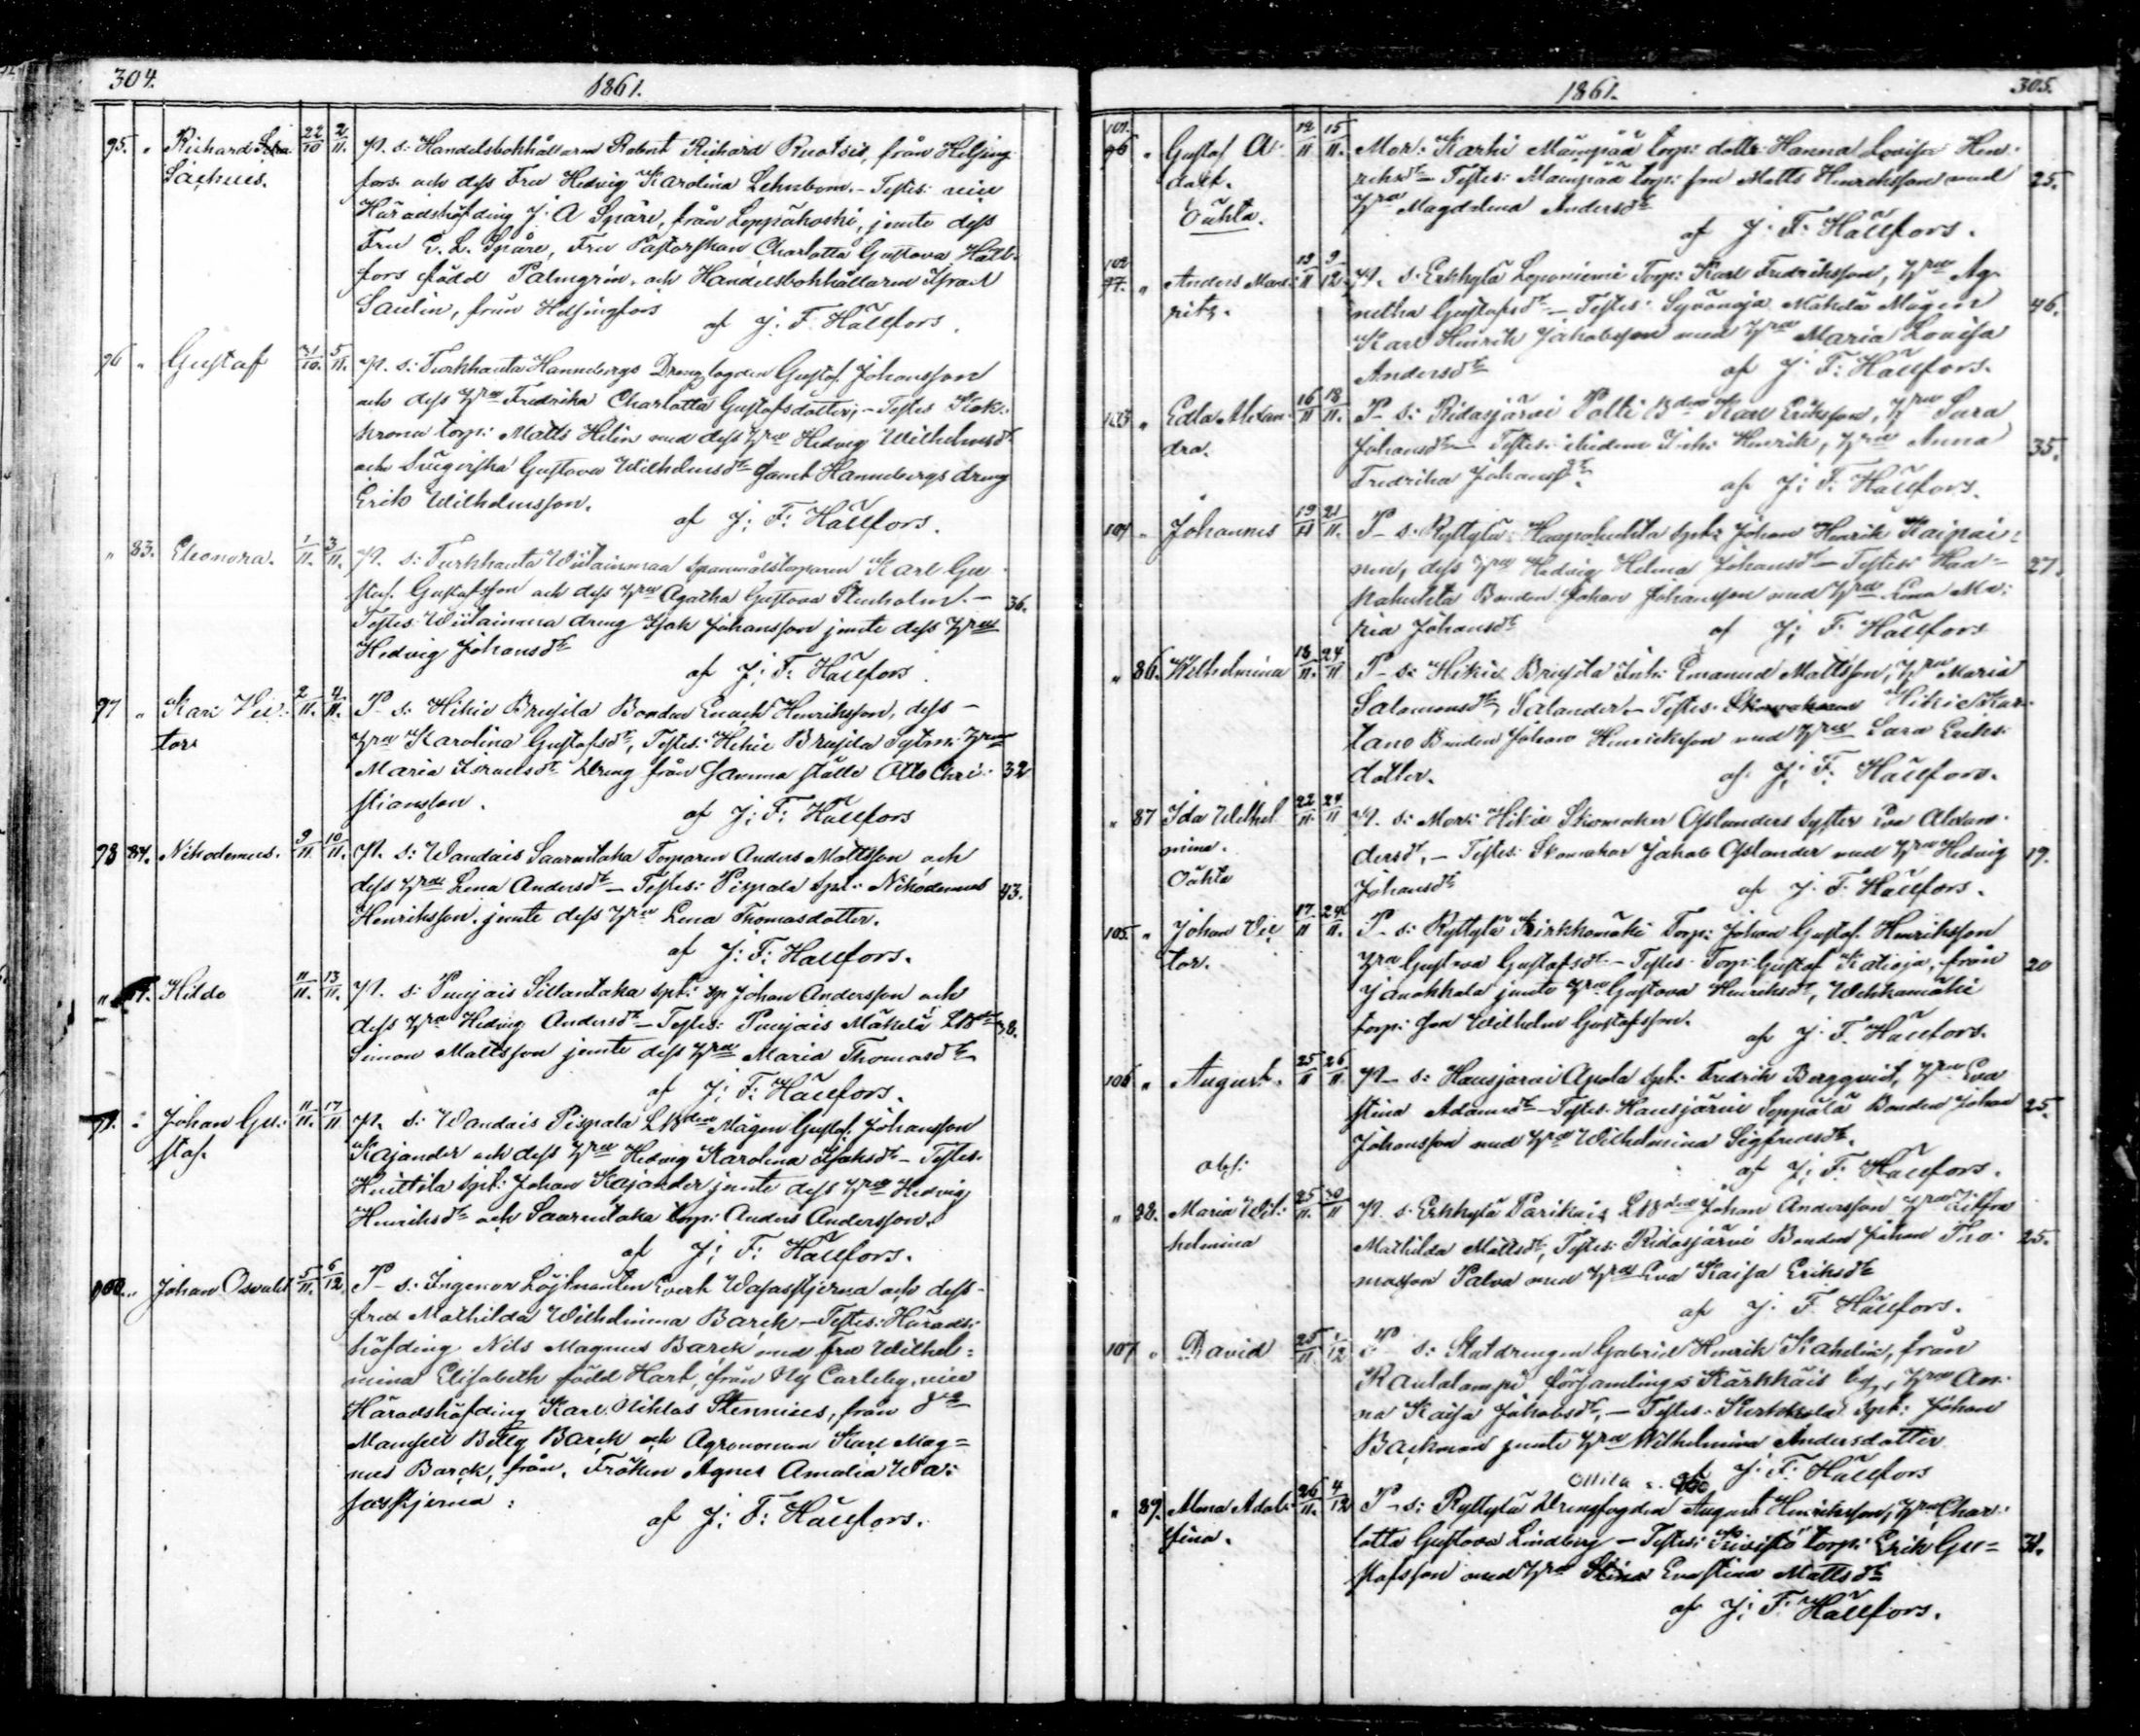 304.
1861.
95. " Richard 22/10 2/11. P. s: Handelsbokhållaren Robert Richard Ruotsis, från Helsing
Sacheus. fors och dess Fru Hedvig Karolina Lehnbom. - Testes: vice
Häradshöfding J. A Spåre, från Leppäkoski, jemte dess
Fru E. L. Spåre, Fru Pastorskan Charlotta Gustava Häll-
fors född Palmgrén, och Handelsbokhållaren Israel
Saulin, från Helsingfors af J. F. Hällfors.
96 " Gustaf 31/10. 5/11. P. s: Turkhauta Hannebergs Drengfogden Gustaf Johansson
och dess Hru Fredrika Charlotta Gustafsdotter; - Testes
torp: Matts Helin med dess Hru Hedvig Wilhelmsdr
och Gustava Wilhelmsdr samt Hannebergs dreng
Erik Wilhelmsson.
af J: F: Hällfors.
" 83. Eleonora. 1/11. 3/11. P. s: Turkhauta Wiitainmaa Spannmålstorparen Karl Gu
staf Gustafsson och dess Hru Agatha Gustava Stenholm. - 36.
Testes: Wiitainmaa dreng Isak Johansson jemte dess Hru
Hedvig Johansdr
af J: F: Hällfors.
97 " Karl Vic: 2/11. 4/11. P. s: Hikiä Brusila Bonden Enoch Henriksson, dess -
tor Hru Karolina Gustafsdr, Testes: Hikiä Brusila Sytni: Hru
Maria Israelsdr Dreng från samma ställe Otto Chri: 32
stiansson.
af J: F: Hällfors
98 84. Nikodemus. 9/11 10/11. P. s: Wandais Saarentaka Torparen Anders Mattsson och
dess Hru Lena Andersdr - Testes: Pispala Spl: Nikodemus 43.
Henriksson jemte dess Hru Lena Thomasdotter.
af J: F: Hällfors.
" Hilda 11/11. 13/11. P. s: Punjais Sillantaka Spl: Johan Andersson och
dess Hru Hedvig Andersdr - Testes: Punjais Mäkelä LBden 38.
Simon Mattsson jemte dess Hru Maria Thomasdr
af J: F: Hällfors.
99. " Johan Gu: 11/11. 17/11 P. s: Wandais Pispala LBden Mågen Gustaf Johansson
staf. Kajander och dess Hru Hedvig Karolina Isaksdr - Testes.
Huittila Spl: Johan Kajander jemte dess Hru Hedvig
Henriksdr och Saarentaka torp: Anders Andersson.
af J: F: Hällfors.
100. " Johan Osvald 5/11. 6/12. P. s: Ingenior Löjtnanten Evert Wasastjerna och dess-
fru Mathilda Wilhelmina Barck - Testes: Härads:
höfding Nils Magnus Barck med fru Wilhel=
mina Elisabeth född Hart, från Ny Carleby, vice
Häradshöfding Karl Niklas Stennius, från do
Mamsell Betty Barck och Agronomen Karl Mag=
nus Barck, från, Fröken Agnes Amalia Wa:
sastjerna:
af J: F: Hällfors.
1861.
305.
101.
96 " Gustaf A: 12/11 15/11. Mor: Karhi Mäenpää torp: dotter Hanna Lovisa Hen-
dolf. riksdr - Testes: Mäenpää torp: son Matts Henriksson med 25.
Oäkta. Hru Magdalena Andersdr
af J: F: Hällfors.
102
97. " Anders Mau: 13/11 9/12. P. s: Erkkylä Leponiemi Torp: Karl Fredriksson, Hru Ag-
ritz. netha Gustafsdr - Testes: Syvänoja Mäkelä Mågen 46.
Karl Henrik Jakobsson med Hru Maria Lovisa
Andersdr
af J: F: Hällfors.
103 " Edla Alexan: 16/11 18/11. P. s: Ridasjärvi Polli Bden Karl Eriksson, Hru Sara
dra. Johansdr - Testes: ibidem Inh: Henrik, Hru Anna 35.
Fredrika Johansdr.
af J: F: Hällfors.
104 " Johannes 19/11 21/11. P. s: Ryttylä Haapahuhta Spl: Johan Henrik Kaipai=
nen, dess Hru Hedvig Helena Johansdr - Testes: Haa= 27.
pahuhta Bonden Johan Johansson med Hru Lena Ma:
ria Johansdr
af J: F: Hällfors
" 86. Wilhelmina 18/11. 24/11 P. s: Hikiä Brusila Inh: Emanuel Mattsson, Hru Maria
Salomonsdr Salander - Testes: Hikiä
Bonden Johan Henriksson med Hru Sara Eriks-
dotter.
af J: F: Hällfors.
" 87 Ida Wilhel 22/11. 24/11 P. s: Mor: Hikiä Skomaker Oslanders syster Eva
mina. dersdr, - Testes: Skomakar Jakob Oslander med Hru Hedvig 19.
Oäkta Johansdr
af J: F: Hällfors.
105. " Johan Vic 17/11 24/11. P. s: Ryttylä Kirkkomäki Torp: Johan Gustaf Henriksson
tor. Hru Gustava Gustafsdr - Testes: Torp: Gustaf Katioja, från 20
Janakkala jemte Hru Gustava Henriksdr, Wehkamäki
torp: son Wilhelm Gustafsson.
af J: F: Hällfors.
106 " August. 25/11 26/11. P. s: Hausjärvi Apola Spl: Fredrik Bergqvist, Hru Eva
stina Adamsdr - Testes: Hausjärvi Seppälä Bonden Johan 25.
Johansson med Hru Wilhelmina Sigfredsdr.
obs:
af J: F: Hällfors.
" 88. Maria Wil: 25/11. 30/11 P. s: Erkkylä Parikais LBden Johan Andersson Hru
helmina Mathilda Mattsdr, Testes: Ridasjärvi Bonden Johan Tho- 25.
masson Palva med Hru Eva Kaisa Eriksdr
af J: F: Hällfors.
107 " David 25/11 1/12 P. s: Statdrengen Gabriel Henrik Kahelin, från
Rautalampi församling, Karhkäis by, Hru An-
na Kaisa Jakobsdr, - Testes: Spl: Johan
Backman jemte Hru Wilhelmina Andersdotter
af J: F: Hällfors
Ollila
" 89. Alma Adol: 26/11. 4/12 P. s: Ryttylä Drengfogden August Henriksson, Hru Char:
fina. lotta Gustava Lindberg - Testes: Kivistö torp: Erik Gu= 31.
stafsson med Hru Evastina Mattsdr
af J: F: Hällfors.